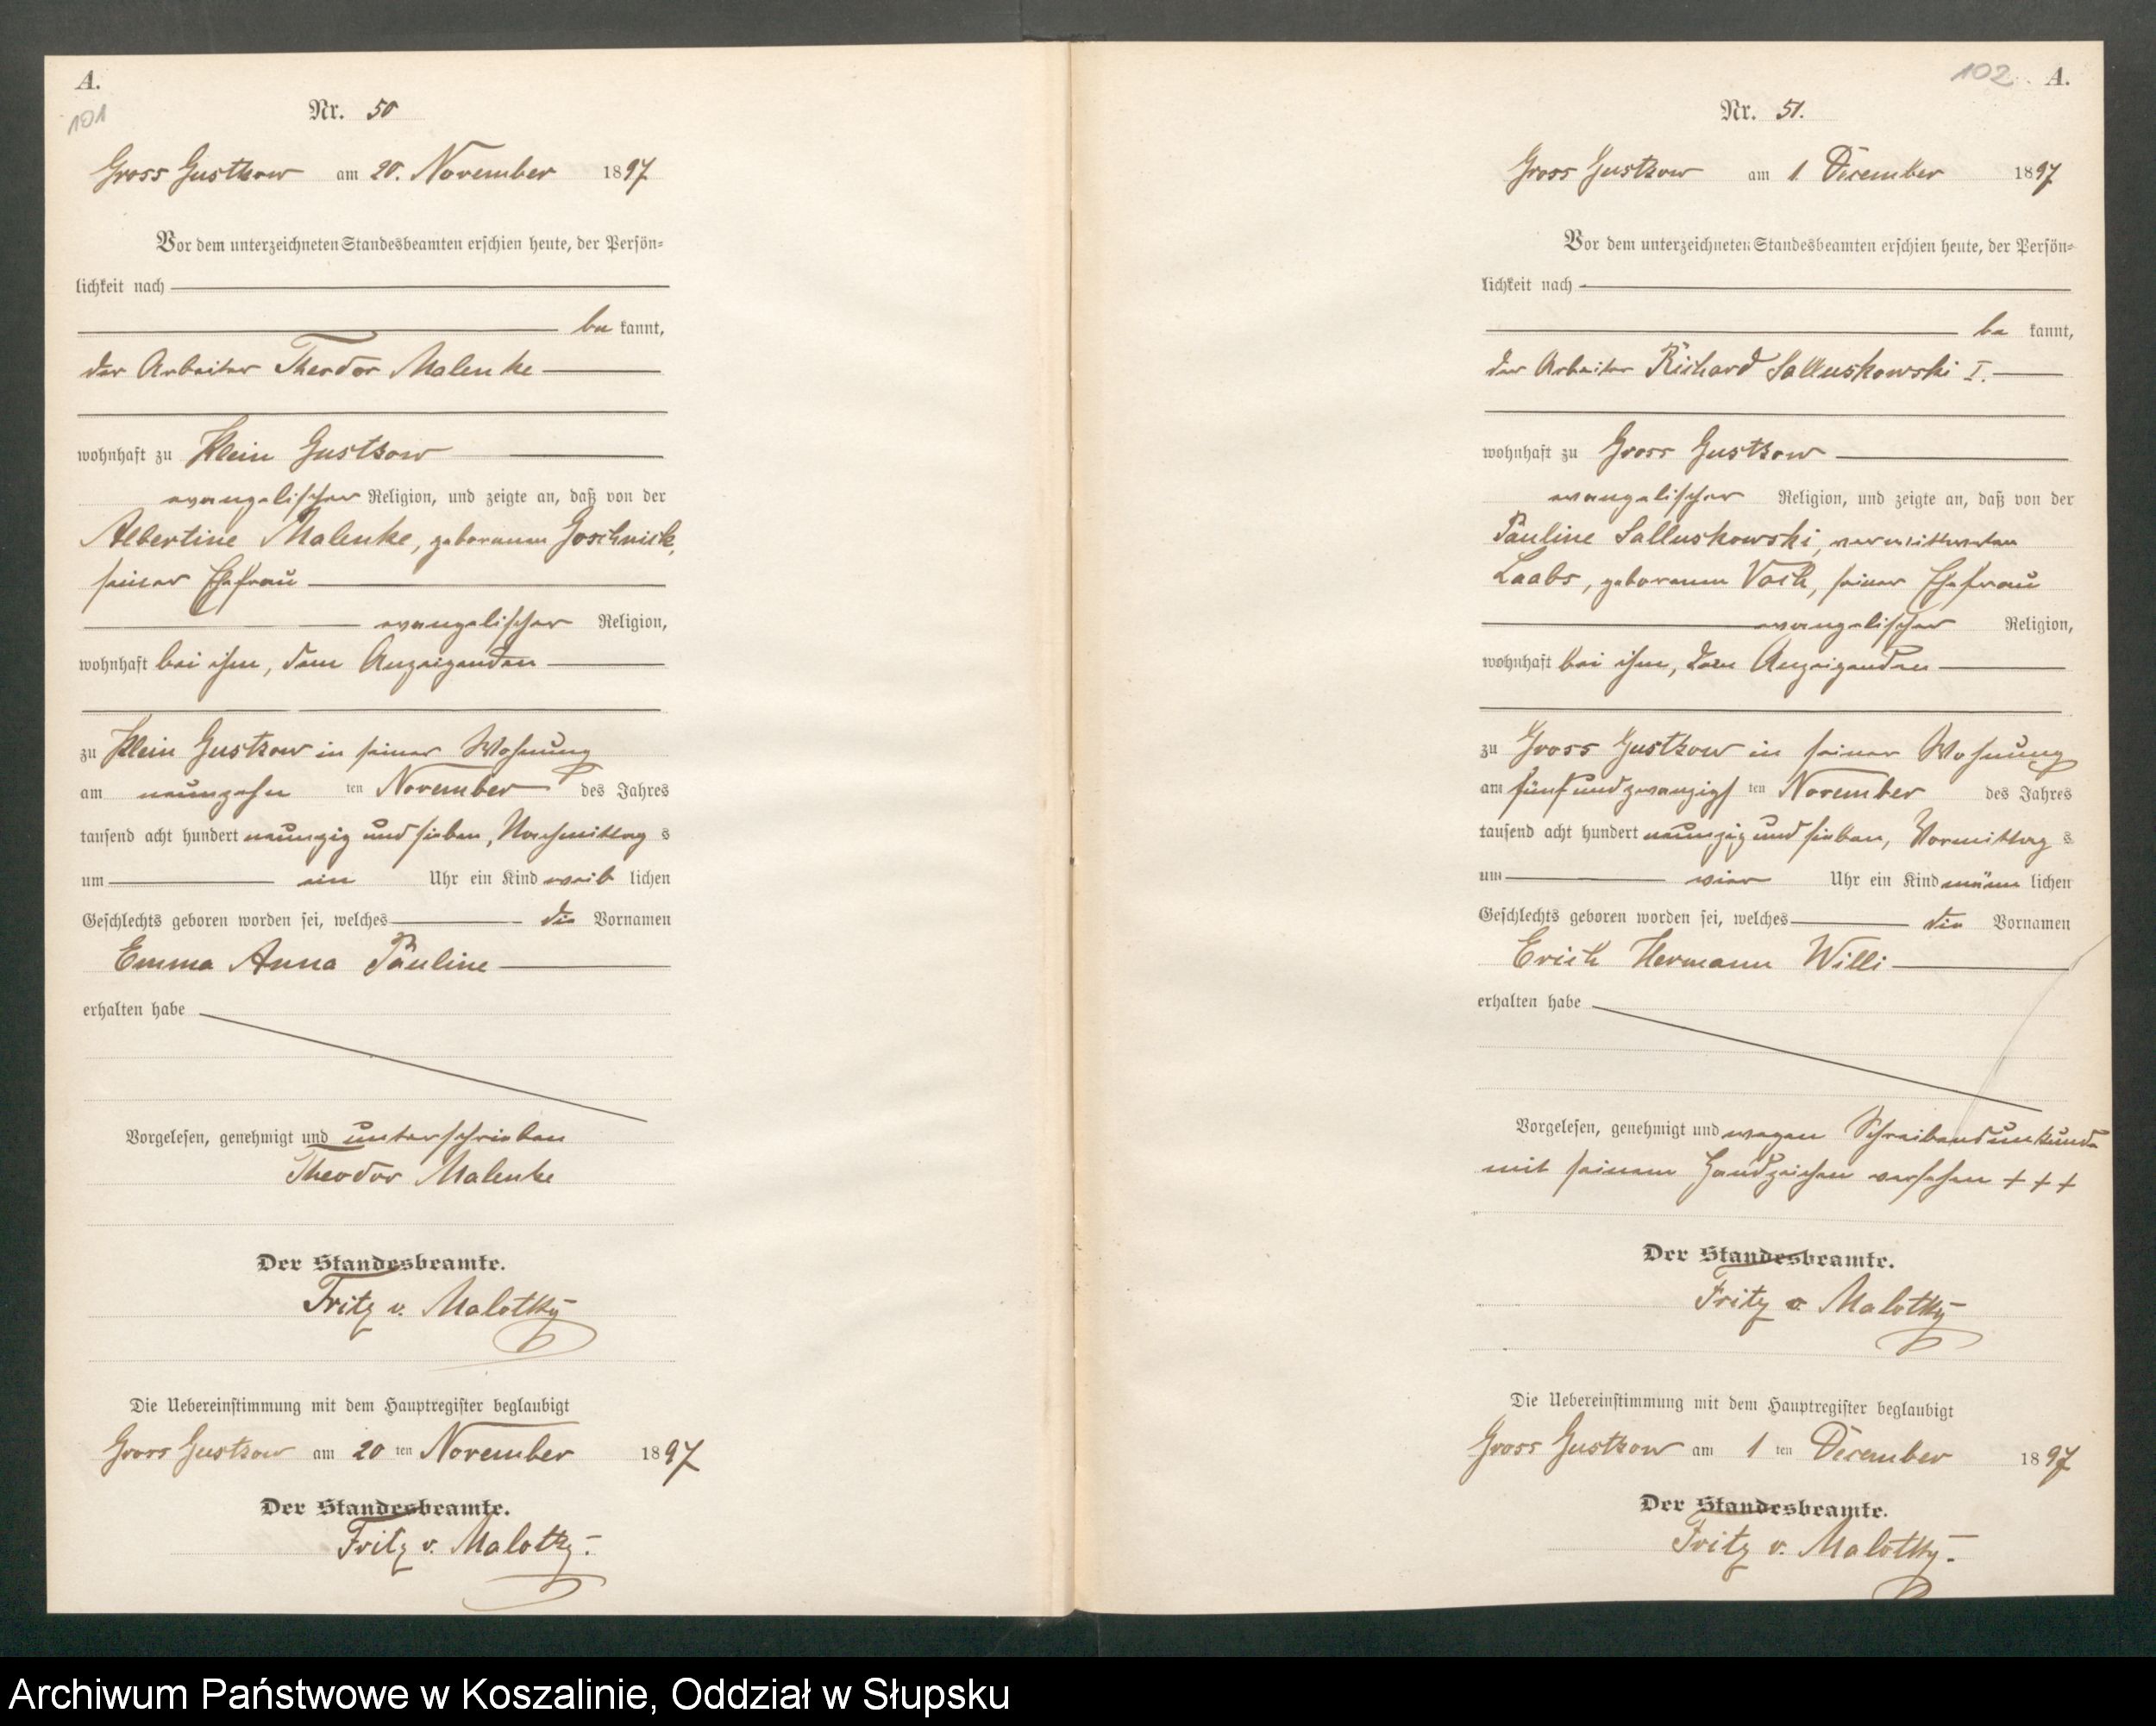 A.
101
Nr. 50
Gross Gustkow am 20. November 1897
Vor dem unterzeichneten Standesbeamten erschien heute, der Persön-
lichkeit nach
be kannt,
der Arbeiter Theodor Malenke
wohnhaft zu Klein Gustkow
evangelischer Religion, und zeigte an, daß von der
Albertine Malenke, geborenen Joschnick,
seiner Ehefrau
evangelischer Religion,
wohnhaft bei ihm, dem Anzeigenden
zu Klein Gustkow in seiner Wohnung
am neunzehn ten November des Jahres
tausend acht hundert neunzig und sieben, Nachmittag s
um ein Uhr ein Kind weib lichen
Geschlechts geboren worden sei, welches die Vornamen
Emma Anna Pauline
erhalten habe
Vorgelesen, genehmigt und unterschrieben
Theodor Malenke
Der Standesbeamte.
Fritz v. Malotky
Die Uebereinstimmung mit dem Hauptregister beglaubigt
Gross Gustkow am 20 ten November 1897
Der Standesbeamte.
Fritz v. Malotky.
102 A.
Nr. 51.
Gross Gustkow am 1. December 1897
Vor dem unterzeichneten Standesbeamten erschien heute, der Persön-
lichkeit nach
be kannt,
der Arbeiter Richard Salluskowski I.
wohnhaft zu Gross Gustkow
evangelischer Religion, und zeigte an, daß von der
Pauline Salluskowski, verwittweten
Laabs, geborenen Vock, seiner Ehefrau
evangelischer Religion,
wohnhaft bei ihm, dem Anzeigenden
zu Gross Gustkow in seiner Wohnung
am fünfundzwanzigs ten November des Jahres
tausend acht hundert neunzig und sieben, Vormittag s
um vier Uhr ein Kind männ lichen
Geschlechts geboren worden sei, welches die Vornamen
Erich Hermann Willi
erhalten habe
Vorgelesen, genehmigt und wegen Schreibensunkunde
mit seinem Handzeichen versehen + + +
Der Standesbeamte.
Fritz v. Malotky
Die Uebereinstimmung mit dem Hauptregister beglaubigt
Gross Gustkow am 1 ten December 1897
Der Standesbeamte.
Fritz v. Malotky.
Archiwum Państwowe w Koszalinie, Oddział w Słupsku